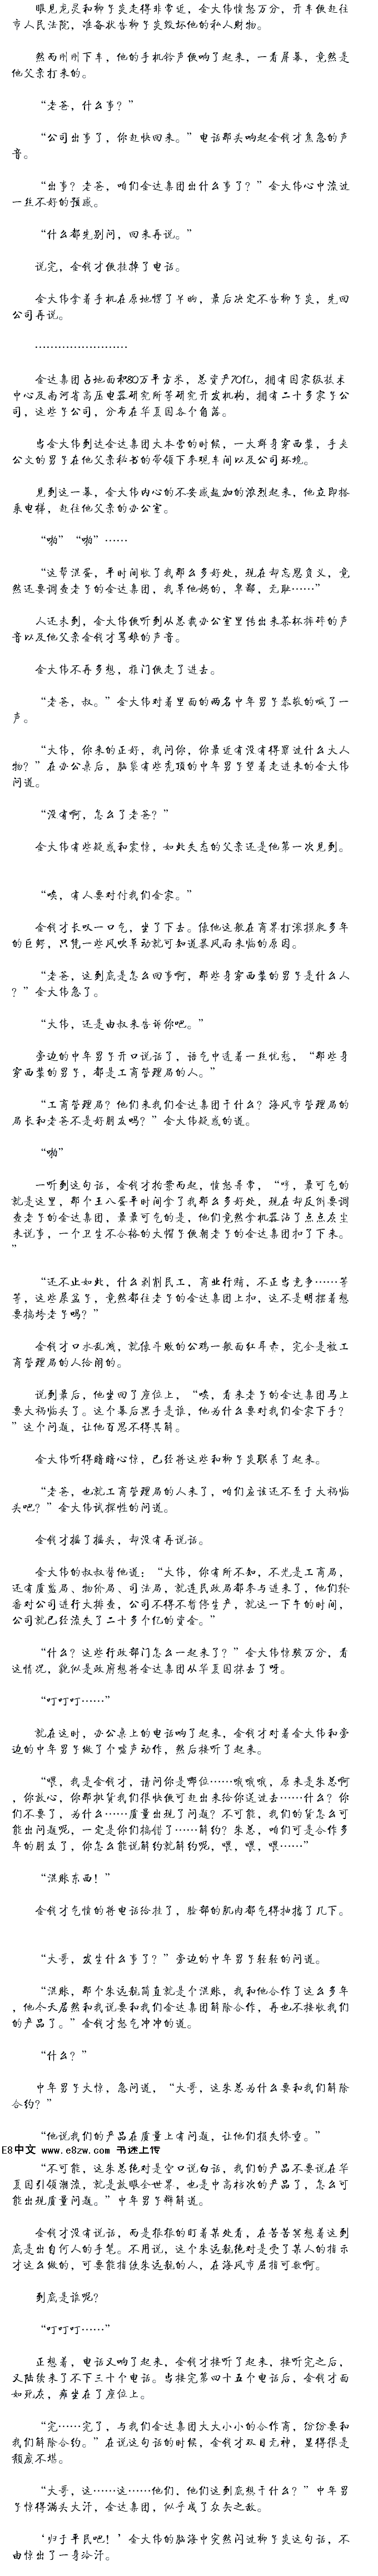 眼见龙灵和柳子炎走得非常近，金大伟愤怒万分，开车便赶往
市人民法院，准备状告柳子炎毁坏他的私人财物。
然而刚刚下车，他的手机铃声便响了起来，一看屏幕，竟然是
他父亲打来的。
“老爸，什么事？”
“公司出事了，你赶快回来。”电话那头响起金钱才焦急的声
音。
“出事？老爸，咱们金达集团出什么事了？”金大伟心中流过
一丝不好的预感。
“什么都先别问，回来再说。”
说完，金钱才便挂掉了电话。
金大伟拿着手机在原地愣了半晌，最后决定不告柳子炎，先回
公司再说。
……………………
金达集团占地面积80万平方米，总资产70亿，拥有国家级技术
中心及南河省高压电器研究所等研究开发机构，拥有二十多家子公
司，这些子公司，分布在华夏国各个角落。
当金大伟到达金达集团大本营的时候，一大群身穿西装，手夹
公文的男子在他父亲秘书的带领下参观车间以及公司环境。
见到这一幕，金大伟内心的不安感越加的浓烈起来，他立即搭
乘电梯，赶往他父亲的办公室。
“啪”“啪”……
“这帮混蛋，平时间收了我那么多好处，现在却忘恩负义，竟
然还要调查老子的金达集团，我草他妈的，卑鄙，无耻……”
人还未到，金大伟便听到从总裁办公室里传出来茶杯摔碎的声
音以及他父亲金钱才骂娘的声音。
金大伟不再多想，推门便走了进去。
“老爸，叔。”金大伟对着里面的两名中年男子恭敬的喊了一
声。
“大伟，你来的正好，我问你，你最近有没有得罪过什么大人
物？”在办公桌后，脑袋有些秃顶的中年男子望着走进来的金大伟
问道。
“没有啊，怎么了老爸？”
金大伟有些疑惑和震惊，如此失态的父亲还是他第一次见到。
“唉，有人要对付我们金家。”
金钱才长叹一口气，坐了下去。像他这般在商界打滚摸爬多年
的巨鳄，只凭一些风吹草动就可知道暴风雨来临的原因。
“老爸，这到底是怎么回事啊，那些身穿西装的男子是什么人
？”金大伟急了。
“大伟，还是由叔来告诉你吧。”
旁边的中年男子开口说话了，语气中透着一丝忧愁，“那些身
穿西装的男子，都是工商管理局的人。”
“工商管理局？他们来我们金达集团干什么？海风市管理局的
局长和老爸不是好朋友吗？”金大伟疑惑的道。
“啪”
一听到这句话，金钱才拍案而起，愤怒异常，“哼，最可气的
就是这里，那个王八蛋平时间拿了我那么多好处，现在却反倒要调
查老子的金达集团，最最可气的是，他们竟然拿机器沾了点点灰尘
来说事，一个卫生不合格的大帽子便朝老子的金达集团扣了下来。
”
“还不止如此，什么剥削民工，商业行贿，不正当竞争……等
等，这些屎盆子，竟然都往老子的金达集团上扣，这不是明摆着想
要搞垮老子吗？”
金钱才口水乱溅，就像斗败的公鸡一般面红耳赤，完全是被工
商管理局的人给闹的。
说到最后，他坐回了座位上，“唉，看来老子的金达集团马上
要大祸临头了。这个幕后黑手是谁，他为什么要对我们金家下手？
”这个问题，让他百思不得其解。
金大伟听得暗暗心惊，已经将这些和柳子炎联系了起来。
“老爸，也就工商管理局的人来了，咱们应该还不至于大祸临
头吧？”金大伟试探性的问道。
金钱才摇了摇头，却没有再说话。
金大伟的叔叔替他道：“大伟，你有所不知，不光是工商局，
还有质监局、物价局、司法局，就连民政局都参与进来了，他们轮
番对公司进行大排查，公司不得不暂停生产，就这一下午的时间，
公司就已经流失了二十多个亿的资金。”
“什么？这些行政部门怎么一起来了？”金大伟惊骇万分，看
这情况，貌似是政府想将金达集团从华夏国抹去了呀。
“叮叮叮……”
就在这时，办公桌上的电话响了起来，金钱才对着金大伟和旁
边的中年男子做了个嘘声动作，然后接听了起来。
“喂，我是金钱才，请问你是哪位……哦哦哦，原来是朱总啊
，你放心，你那批货我们很快便可赶出来给你送过去……什么？你
们不要了，为什么……质量出现了问题？不可能，我们的货怎么可
能出问题呢，一定是你们搞错了……解约？朱总，咱们可是合作多
年的朋友了，你怎么能说解约就解约呢，喂，喂，喂……”
“混账东西！”
金钱才气愤的将电话给挂了，脸部的肌肉都气得抽搐了几下。
“大哥，发生什么事了？”旁边的中年男子轻轻的问道。
“混账，那个朱远靓简直就是个混账，我和他合作了这么多年
，他今天居然和我说要和我们金达集团解除合作，再也不接收我们
的产品了。”金钱才怒气冲冲的道。
“什么？”
中年男子大惊，急问道，“大哥，这朱总为什么要和我们解除
合约？”
“他说我们的产品在质量上有问题，让他们损失惨重。”
E8中文 www.e8zw.com 书迷上传
“不可能，这朱总绝对是空口说白话，我们的产品不要说在华
夏国引领潮流，就是放眼全世界，也是中高档次的产品了，怎么可
能出现质量问题。”中年男子辩解道。
金钱才没有说话，而是狠狠的盯着某处看，在苦苦冥想着这到
底是出自何人的手笔。不用说，这个朱远靓绝对是受了某人的指示
才这么做的，可要能指使朱远靓的人，在海风市屈指可数啊。
到底是谁呢？
“叮叮叮……”
正想着，电话又响了起来，金钱才接听了起来，接听完之后，
又陆续来了不下三十个电话。当接完第四十五个电话后，金钱才面
如死灰，瘫坐在了座位上。
“完……完了，与我们金达集团大大小小的合作商，纷纷要和
我们解除合约。”在说这句话的时候，金钱才双目无神，显得很是
颓废不堪。
“大哥，这……这……他们，他们这到底想干什么？”中年男
子惊得满头大汗，金达集团，似乎成了众矢之敌。
‘归于平民吧！’金大伟的脑海中突然闪过柳子炎这句话，不
由惊出了一身冷汗。